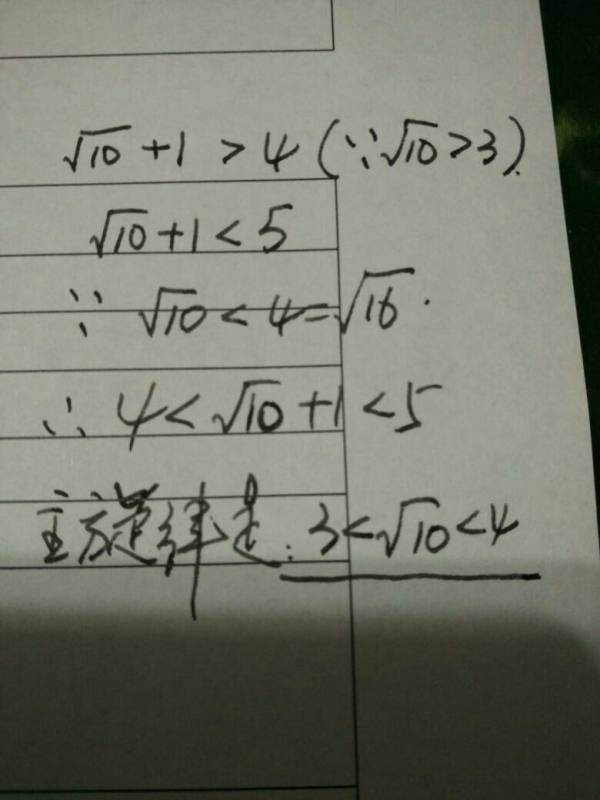 √10 + 1 > 4 (∵√10 > 3).
√10 + 1 < 5
∵ √10 < 4 = √16.
∴ 4 < √10 + 1 < 5
主旋律是: 3 < √10 < 4